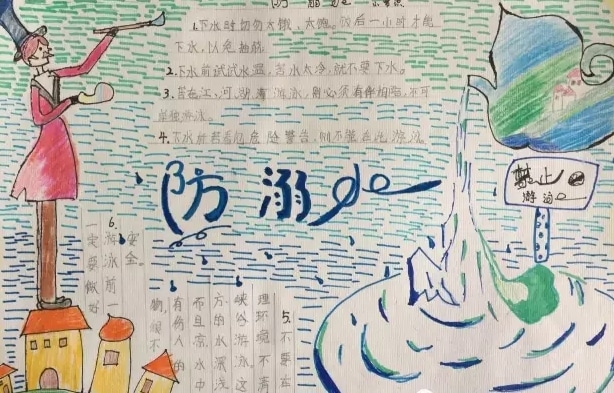 防溺水
1.下水时切勿太饿、太饱。饭后一小时才能
下水,以免抽筋。
2.下水前试试水温,若水太冷,就不要下水。
3.若在江、河、湖、海游泳,则必须有伴相陪,不可
单独游泳。
4.下水前若看到危险警告,则不能在此游泳
防溺水
禁止
游泳
5.不要在
理环境不清
峡谷游泳。这
方的水深浅
不且凉,水中
有伤人的
物,很不
安全。
6.游泳前一
定要做好